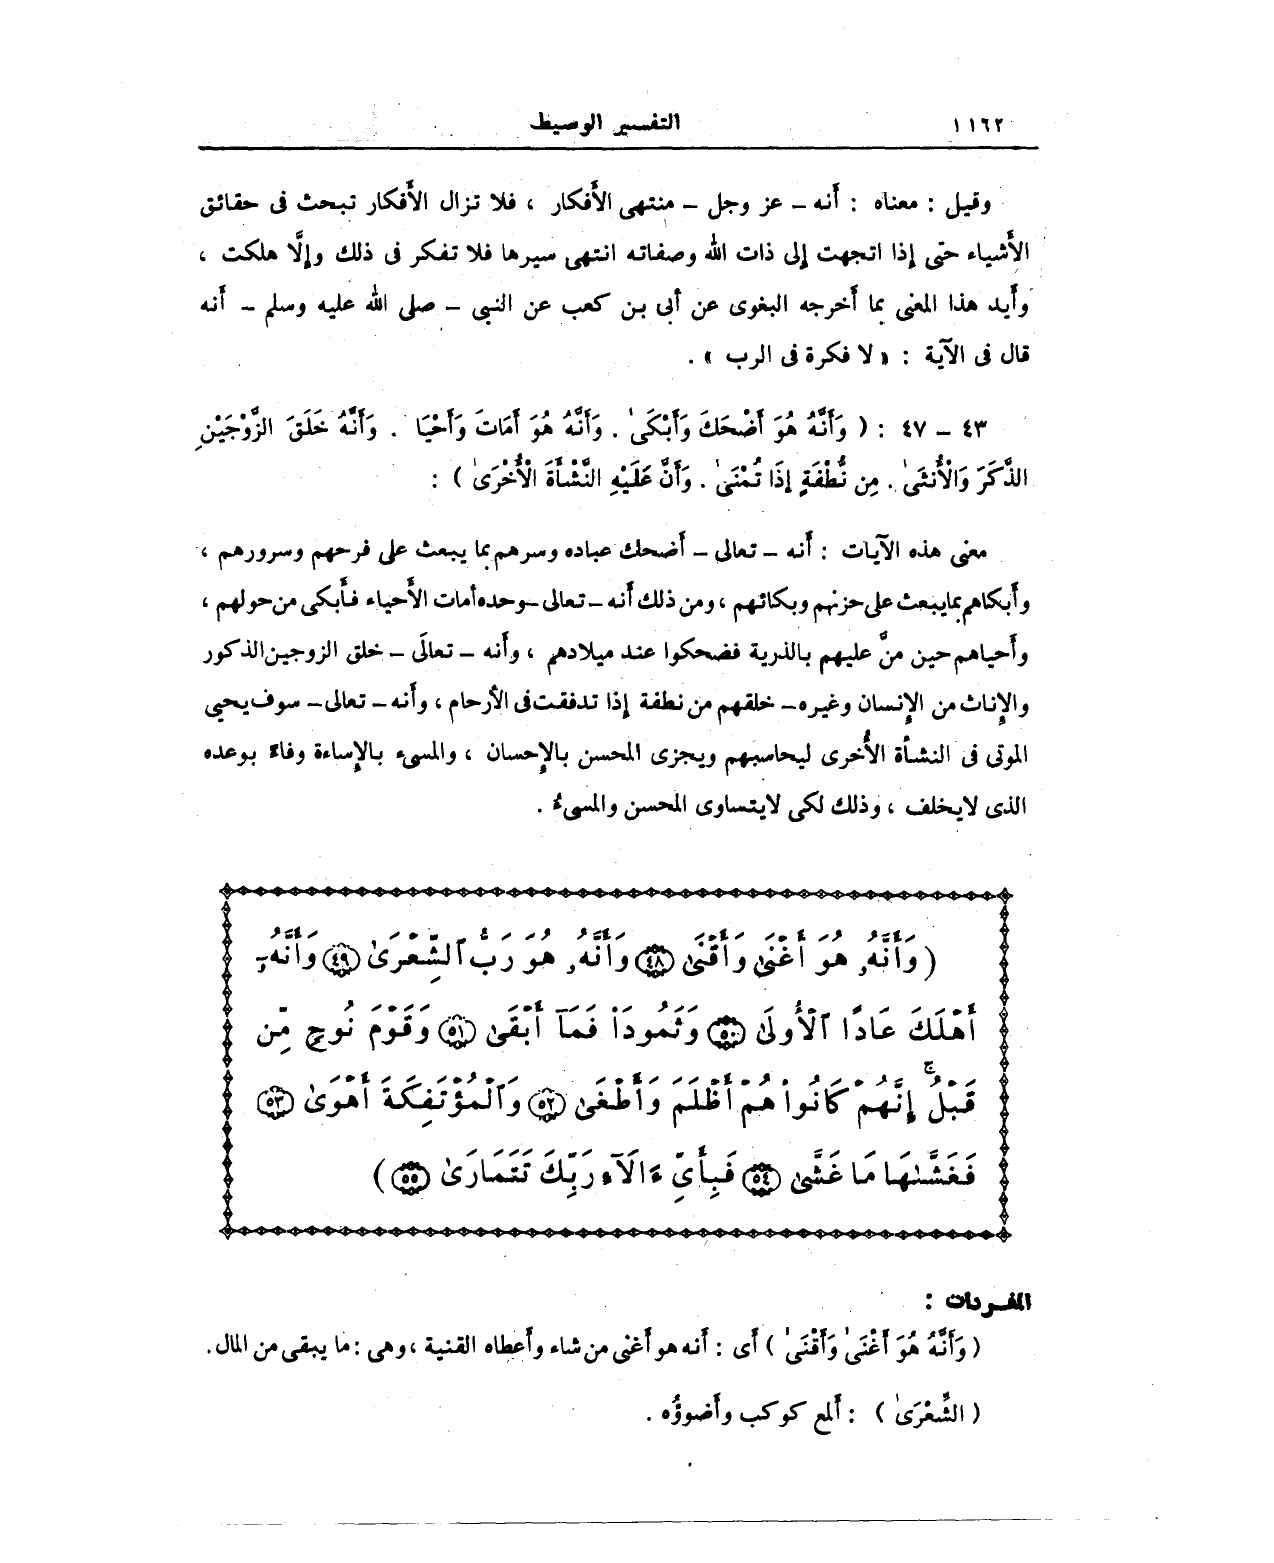 ١١٦٢ التفسير الوسيط
وقيل : معناه : أنه – عز وجل – منتهى الأفكار ، فلا تزال الأفكار تبحث فى حقائق
الأشياء حتى إذا اتجهت إلى ذات الله وصفاته انتهى سيرها فلا تفكر فى ذلك وإلَّا هلكت ،
وأيد هذا المعنى بما أخرجه البغوى عن أبى بن كعب عن النبى – صلى الله عليه وسلم – أنه
قال فى الآية : « لا فكرة فى الرب » .
٤٣ – ٤٧ : ( وَأَنَّهُ هُوَ أَضْحَكَ وَأَبْكَىٰ . وَأَنَّهُ هُوَ أَمَاتَ وَأَحْيَا . وَأَنَّهُ خَلَقَ الزَّوْجَيْنِ
الذَّكَرَ وَالْأُنثَىٰ . مِن نُّطْفَةٍ إِذَا تُمْنَىٰ . وَأَنَّ عَلَيْهِ النَّشْأَةَ الْأُخْرَىٰ ) :
معنى هذه الآيات : أنه – تعالى – أضحك عباده وسرهم بما يبعث على فرحهم وسرورهم ،
وأبكاهم بما يبعث على حزنهم وبكائهم ، ومن ذلك أنه – تعالى – وحده أمات الأحياء فأبكى من حولهم ،
وأحياهم حين منَّ عليهم بالذرية فضحكوا عند ميلادهم ، وأنه – تعالَى – خلق الزوجين الذكور
والإناث من الإنسان وغيره – خلقهم من نطفة إذا تدفقت فى الأرحام ، وأنه – تعالى – سوف يحيى
الموتى فى النشأة الأُخرى ليحاسبهم ويجزى المحسن بالإحسان ، والمسىء بالإساءة وفاءً بوعده
الذى لا يخلف ، وذلك لكى لا يتساوى المحسن والمسىءُ .
( وَأَنَّهُۥ هُوَ أَغْنَىٰ وَأَقْنَىٰ ٤٨ وَأَنَّهُۥ هُوَ رَبُّ ٱلشِّعْرَىٰ ٤٩ وَأَنَّهُۥٓ
أَهْلَكَ عَادًا ٱلْأُولَىٰ ٥٠ وَثَمُودَا۟ فَمَآ أَبْقَىٰ ٥١ وَقَوْمَ نُوحٍ مِّن
قَبْلُ ۖ إِنَّهُمْ كَانُوا۟ هُمْ أَظْلَمَ وَأَطْغَىٰ ٥٢ وَٱلْمُؤْتَفِكَةَ أَهْوَىٰ ٥٣
فَغَشَّىٰهَا مَا غَشَّىٰ ٥٤ فَبِأَىِّ ءَالَآءِ رَبِّكَ تَتَمَارَىٰ ٥٥ )
المفردات :
( وَأَنَّهُ هُوَ أَغْنَىٰ وَأَقْنَىٰ ) أى : أنه هو أغنى من شاء وأعطاه القنية ، وهى : ما يبقى من المال .
( الشِّعْرَىٰ ) : ألمع كوكب وأضوؤُه .